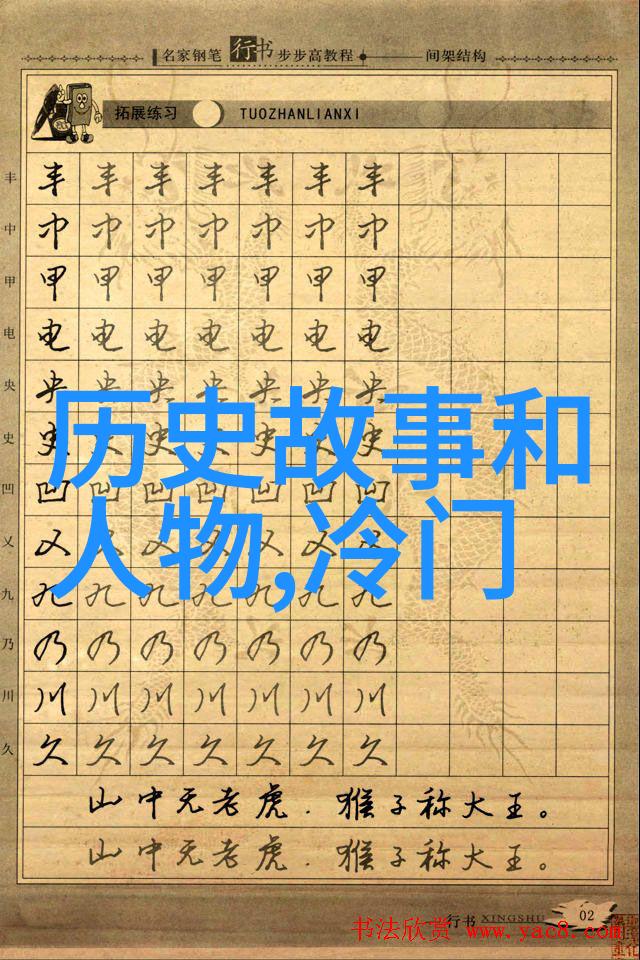 名家钢笔 行书 步步高教程 间架结构
拓展练习 TUOZHANLIANXI
丰 丰 丰 丰 丰 丰 丰 丰
中 中 中 中 中 中 中 中
甲 甲 甲 甲 甲 甲 甲 甲
电 电 电 电 电 电 电 电
央 央 央 央 央 央 央 央
历史故事和
史 史 史 史 史 史 史 史
凹 凹 凹 凹 凹 凹 凹 凹
人物,冷门
乂 乂 乂 乂 乂 乂 乂 乂
九 九 九 九 九 九 九 九
乃 乃 乃 乃 乃 乃 乃 乃
川 川 川 川 川 川 川 川
久 久 久 久 久 久 久 久
山中无老虎.猴子称大王。
山中无老虎.猴子称大王。
行书 XINGSHU 02
书法欣赏 www.yac8.com